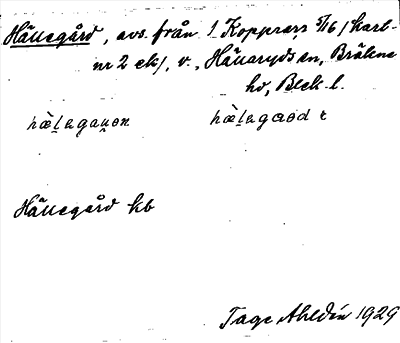 Hällegård, avs. från 1 Kopprarr 5/16 / kart-
nr 2 ek/, v., Hällaryds sn, Bräkne
hd, Blek. l.
hæ̀l̠agau̯ɵn hæ̀l̠agaɵd r
Hällegård kb
Tage Ahldén 1929